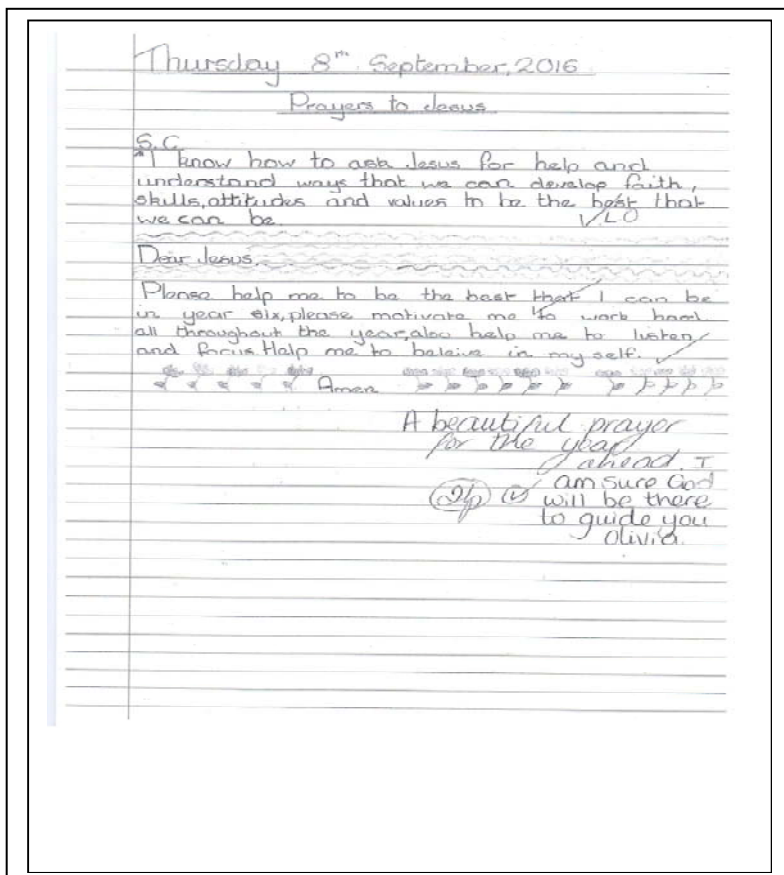 Thursday 8th September, 2016
Prayers to Jesus
S.C
*I know how to ask Jesus for help and
understand ways that we can develop faith,
skills, attitudes and values to be the best that
we can be.
✓LO
Dear Jesus,
Please help me to be the best that I can be
in year six, please motivate me to work hard
all throughout the year, also help me to listen
and focus. Help me to beleive in my self.
Amen
A beautiful prayer
for the year
ahead. I
am sure God
will be there
to guide you
Olivia.